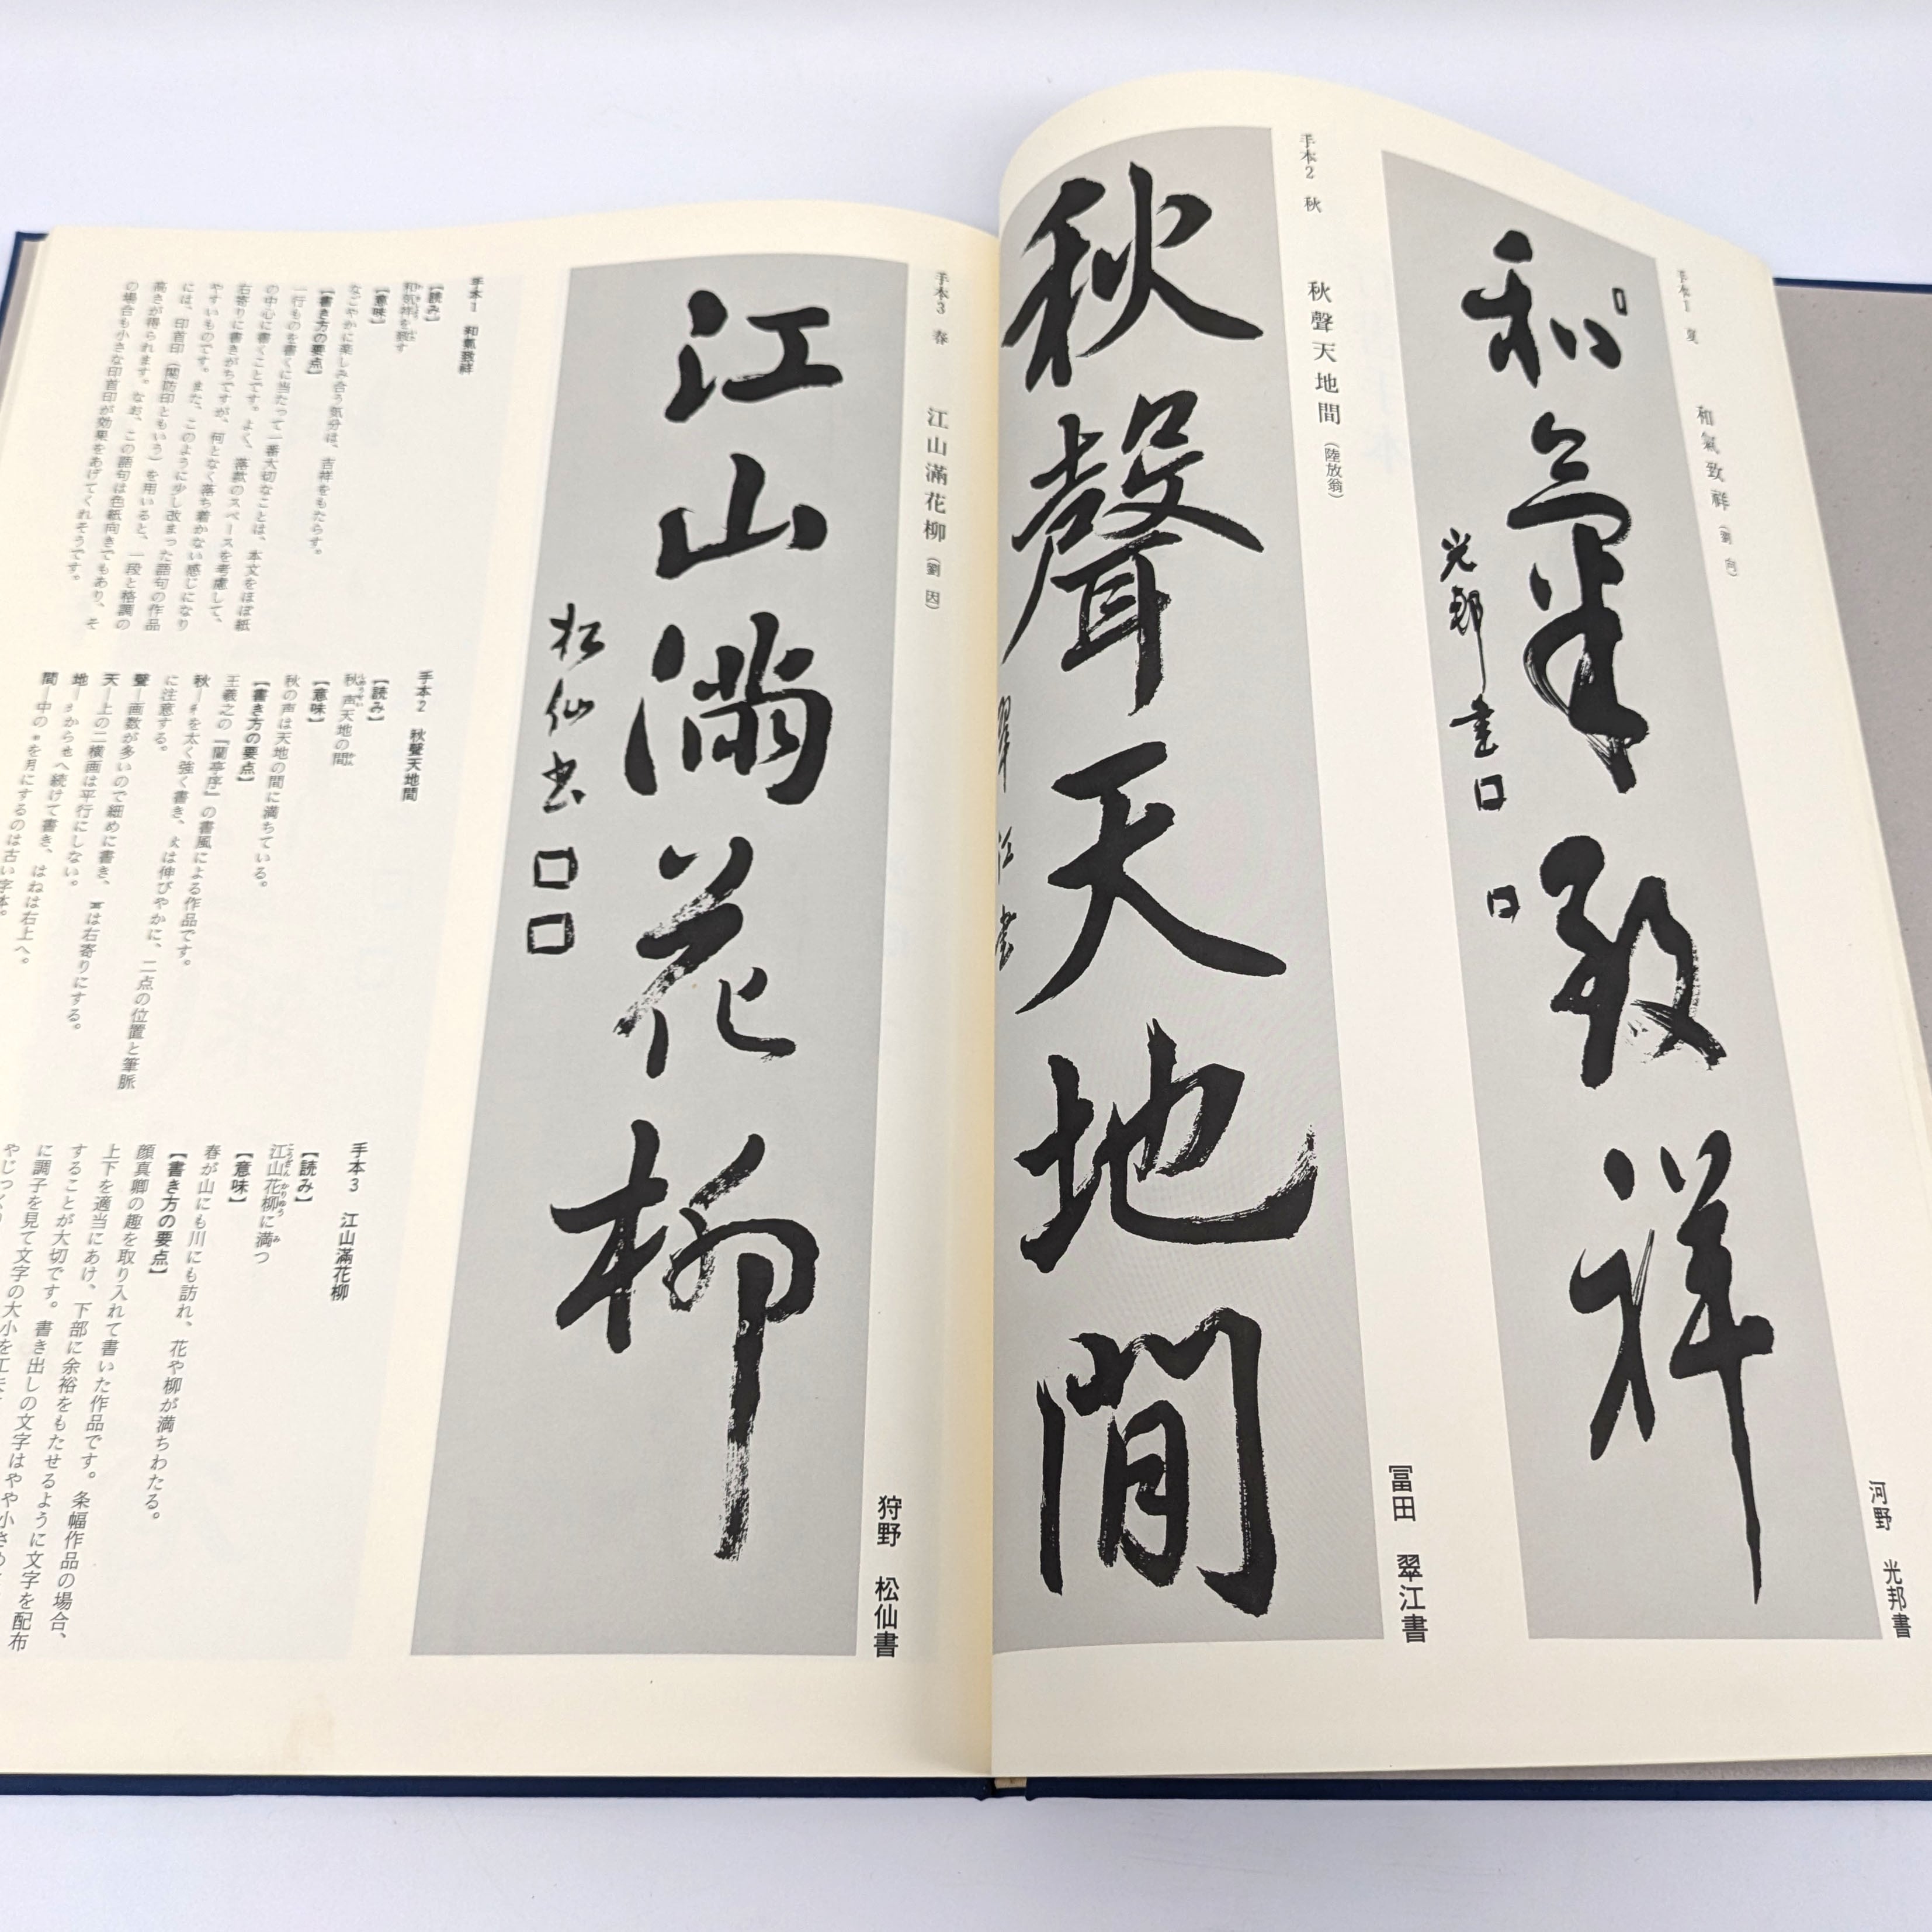 手本1 夏 和氣致祥（劉向）
和氣致祥
光邦書
河野 光邦書
手本2 秋 秋聲天地間（陸放翁）
秋聲天地間
翠江書
冨田 翠江書
手本3 春 江山滿花柳（劉因）
江山滿花柳
松仙书
狩野 松仙書
手本1 和氣致祥
【読み】
和気祥を致す
【意味】
なごやかに楽しみ合う気分は、吉祥をもたらす。
【書き方の要点】
一行ものを書くに当たって一番大切なことは、本文をほぼ紙
の中心に書くことです。よく、落款のスペースを考慮して、
右寄りに書きがちですが、何となく落ち着かない感じになり
やすいものです。また、このように少し改まった語句の作品
には、印首印（関防印ともいう）を用いると、一段と格調の
高さが得られます。なお、この語句は色紙向きでもあり、そ
の場合も小さな印首印が効果をあげてくれそうです。
手本2 秋聲天地間
【読み】
秋声天地の間
【意味】
秋の声は天地の間に満ちている。
【書き方の要点】
王羲之の『蘭亭序』の書風による作品です。
秋―禾を太く強く書き、火は伸びやかに、二点の位置と筆脈
に注意する。
聲―画数が多いので細めに書き、耳は右寄りにする。
天―上の二横画は平行にしない。
地―土から也へ続けて書き、はねは右上へ。
間―中の日を月にするのは古い字体。
手本3 江山滿花柳
【読み】
江山花柳に満つ
【意味】
春が山にも川にも訪れ、花や柳が満ちわたる。
【書き方の要点】
顔真卿の趣を取り入れて書いた作品です。条幅作品の場合、
上下を適当にあけ、下部に余裕をもたせるように文字を配布
することが大切です。書き出しの文字はやや小さめに
に調子を見て文字の大小を工夫
やじっくり